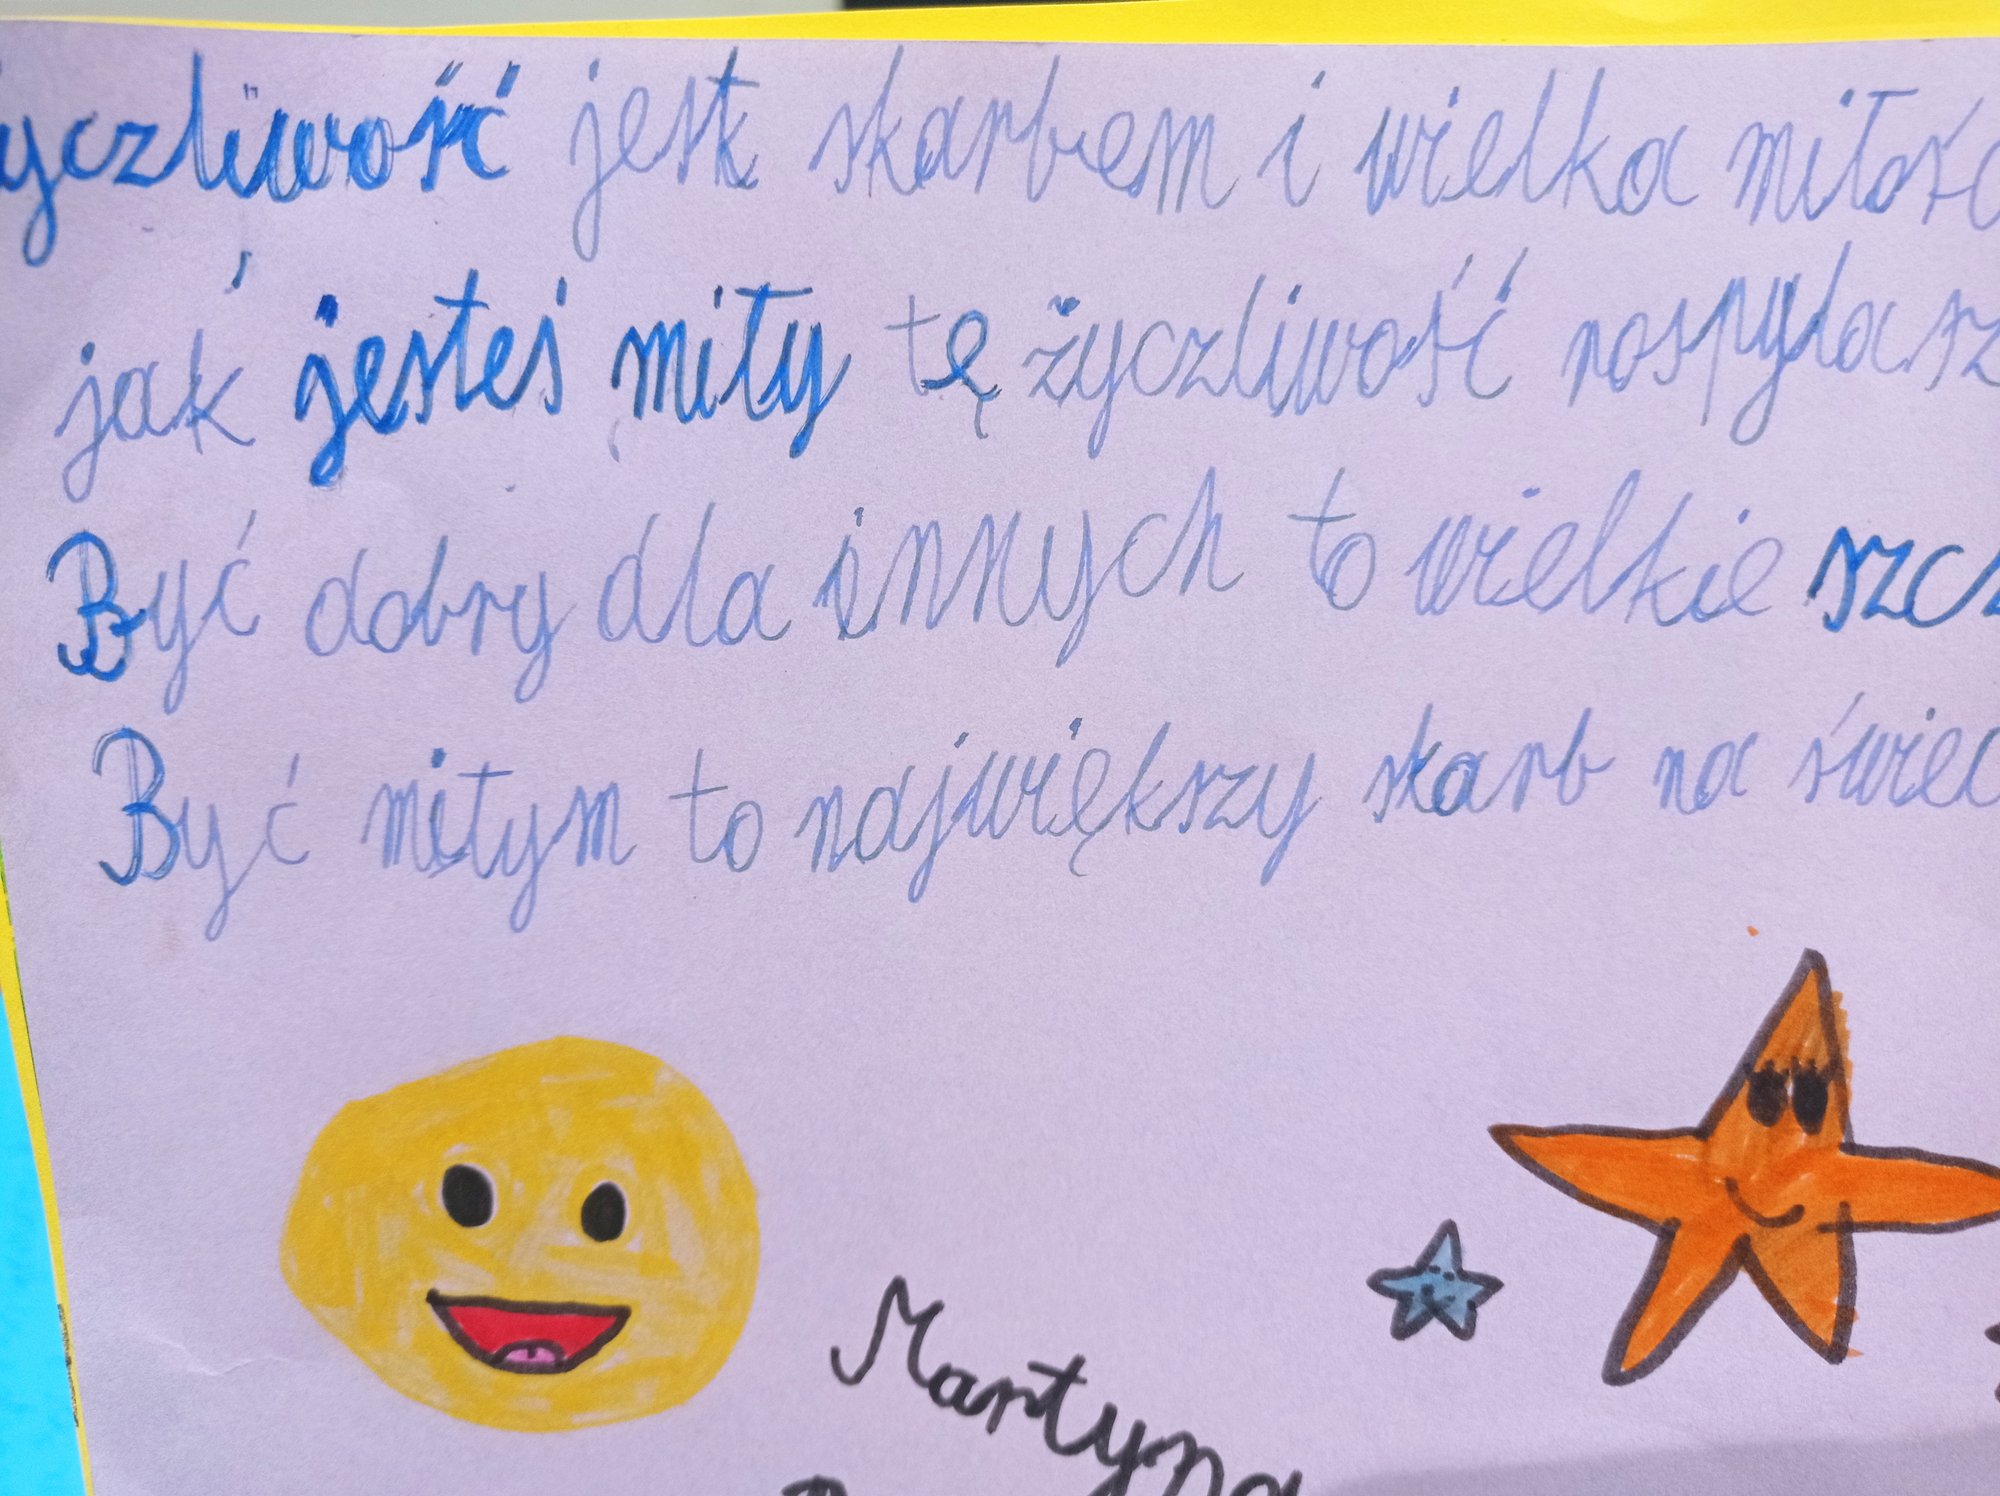 yczliwość jest skarbem i wielka miłość
jak jesteś miły tę życzliwość rospylasz
Być dobry dla innych to wielkie szcz
Być miłym to największy skarb na świec
Martyna